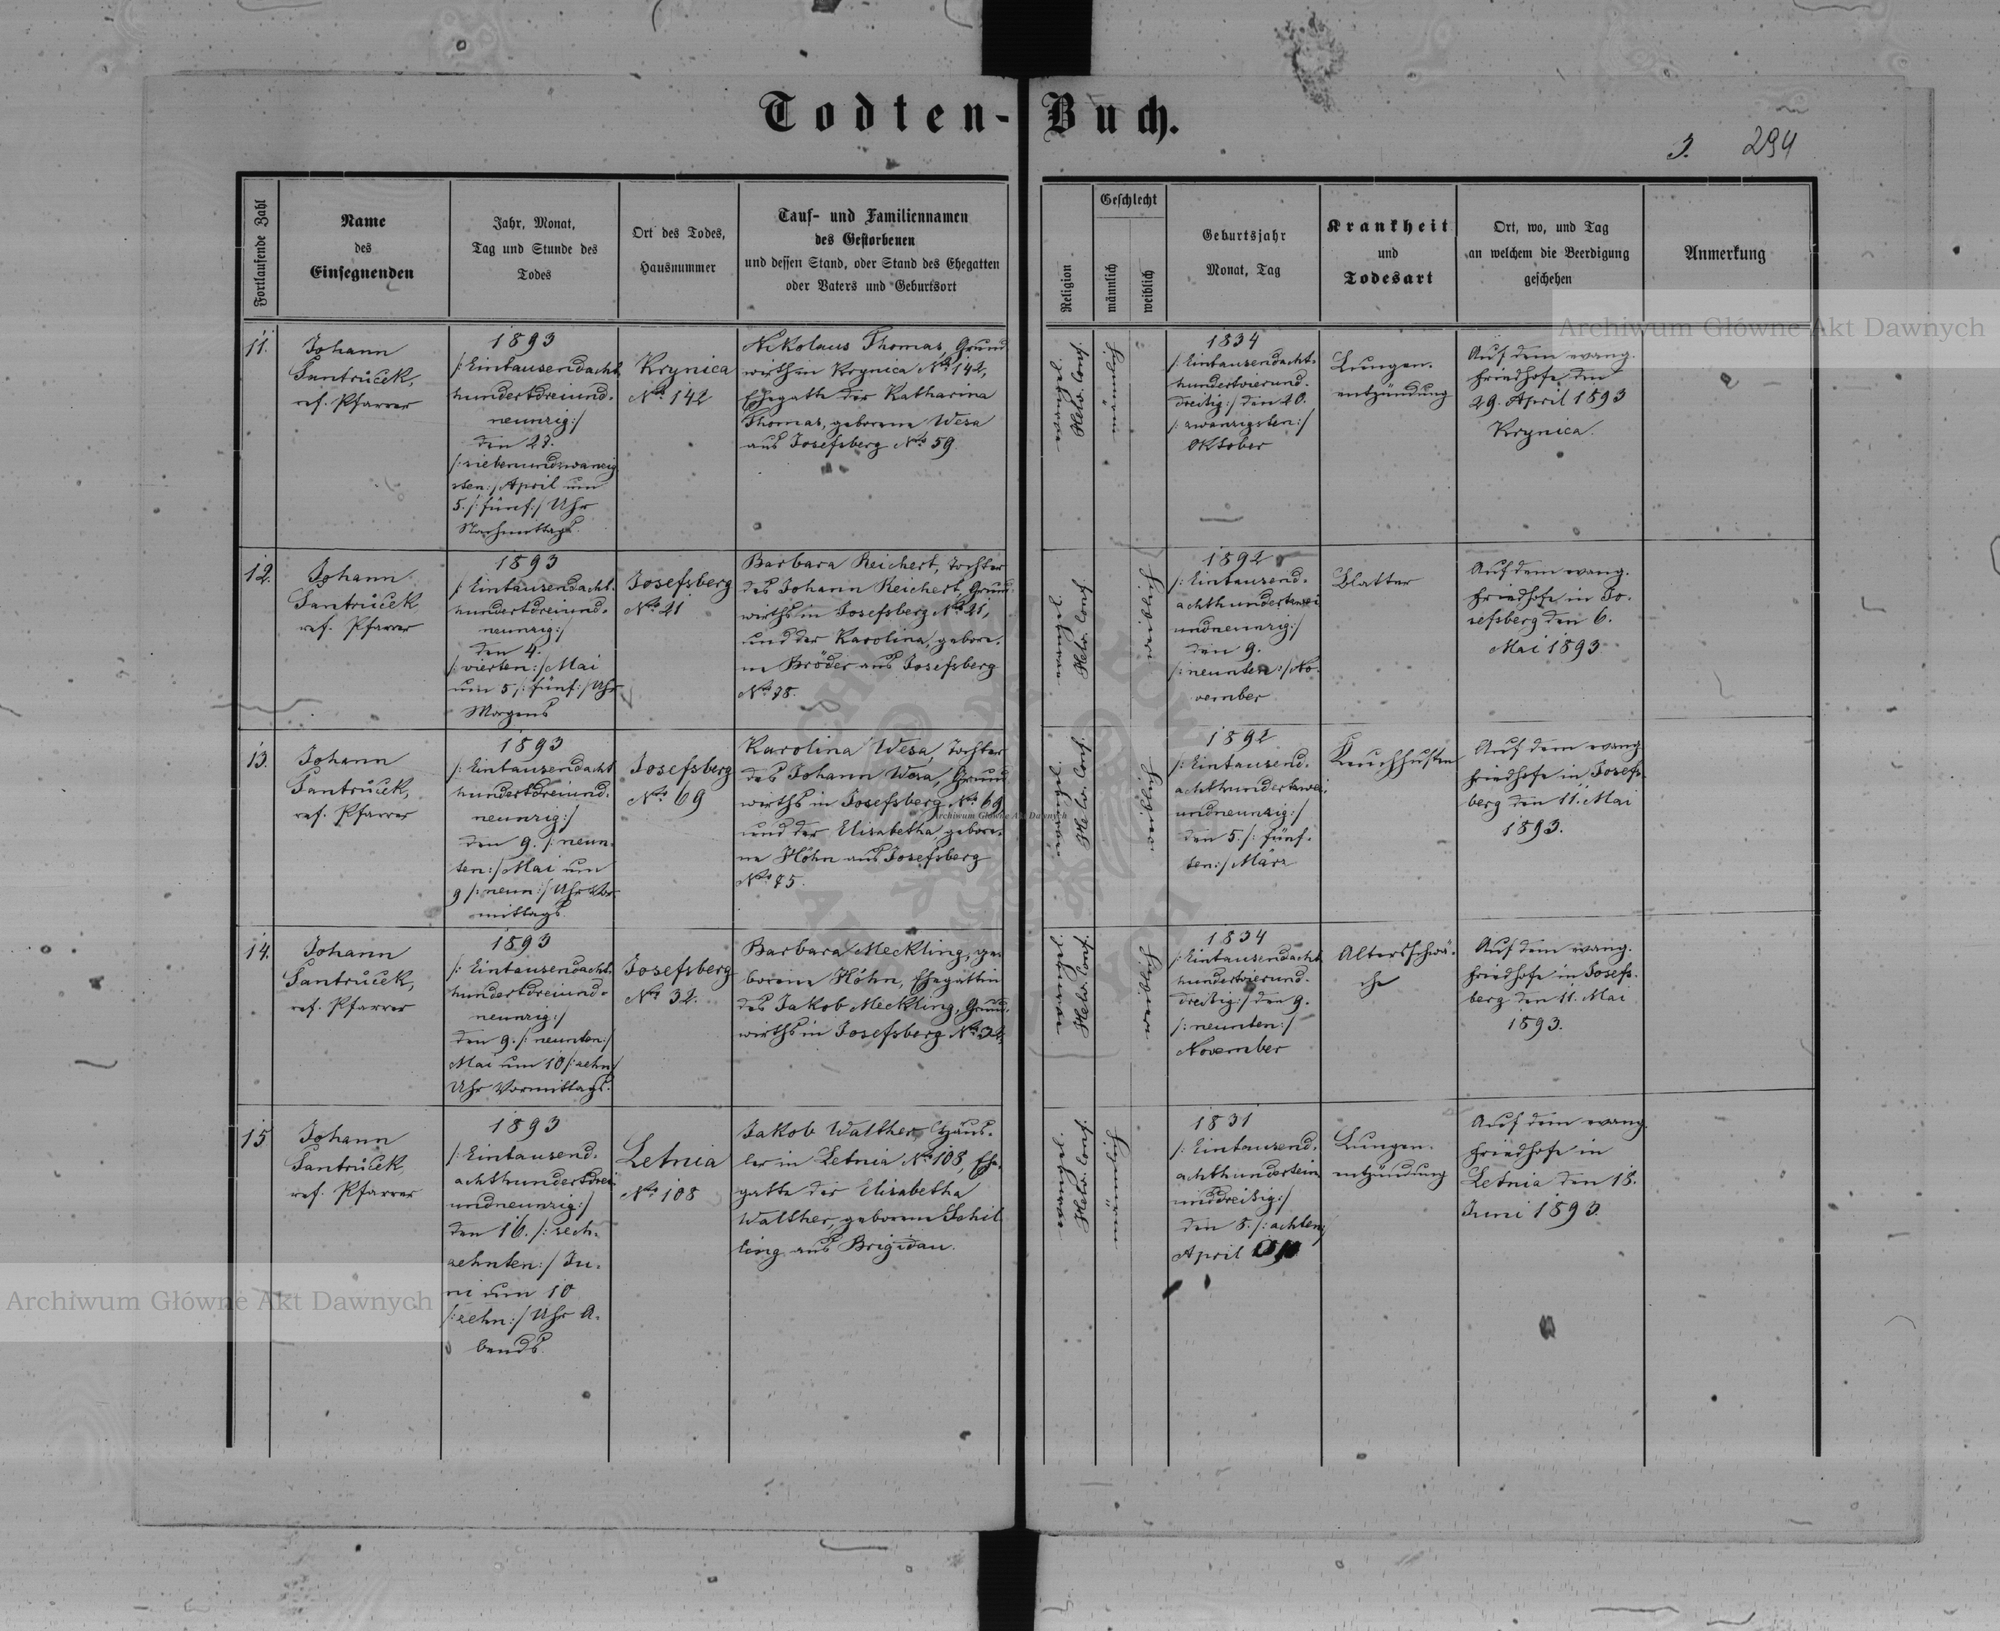 Todten-Buch.
3. 294
Fortlaufende Zahl
Name
des
Einsegnenden
Jahr, Monat,
Tag und Stunde des
Todes
Ort des Todes,
Hausnummer
Tauf- und Familiennamen
des Gestorbenen
und dessen Stand, oder Stand des Ehegatten
oder Vaters und Geburtsort
Religion
Geschlecht
männlich
weiblich
Geburtsjahr
Monat, Tag
Krankheit
und
Todesart
Ort, wo, und Tag
an welchem die Beerdigung
geschehen
Anmerkung
11.
Johann
Santrůček,
ref. Pfarrer
1893
/: Eintausendacht
hundertdreiund-
neunzig :/
den 27.
/: siebenundzwanzig
sten :/ April um
5. /: fünf :/ Uhr
Nachmittags.
Krynica
Nro 142
Nikolaus Thomas, Grund
wirth in Krynica Nro 142,
Ehegatte der Katharina
Thomas, geborenen Wesa
aus Josefsberg Nro 59.
evangel.
Helv. Conf.
männlich
1834
/: Eintausendacht-
hundertvierund-
dreißig :/ den 20.
/: zwanzigsten :/
Oktober
Lungen-
entzündung
Auf dem evang.
Friedhofe den
29. April 1893
Krynica.
12.
Johann
Santrůček,
ref. Pfarrer
1893
/: Eintausendacht-
hundertdreiund-
neunzig :/
den 4.
/: vierten :/ Mai
um 5 /: fünf :/ Uhr
Morgens
Josefsberg
Nro 21
Barbara Reichert, Tochter
des Johann Reichert, Grund-
wirths in Josefsberg Nro 21,
und der Karolina, gebore-
ne Bröder aus Josefsberg
Nro 78.
evangel.
Helv. Conf.
weiblich
1892
/: Eintausend-
achthundertzwei
undneunzig :/
den 9.
/: neunten :/ No-
vember
Blatter
Auf dem evang.
Friedhofe in Jo-
sefsberg den 6.
Mai 1893
13.
Johann
Santrůček,
ref. Pfarrer
1893
/: Eintausendacht
hundertdreiund-
neunzig :/
den 9. /: neun-
ten :/ Mai um
9 /: neun :/ Uhr Vor-
mittags.
Josefsberg
Nro 69
Karolina Wesa, Tochter
des Johann Wesa, Grund-
wirths in Josefsberg Nro 69,
und der Elisabetha, gebore-
ne Höhn aus Josefsberg
Nro 75.
evangel.
Helv. Conf.
weiblich
1892
/: Eintausend-
achthundertzwei
undneunzig :/
den 5. /: fünf-
ten :/ März
Keuchhusten
Auf dem evang
Friedhofe in Josefs-
berg den 11. Mai
1893.
14.
Johann
Santrůček,
ref. Pfarrer
1893
/: Eintausendacht-
hundertdreiund-
neunzig :/
den 9. /: neunten :/
Mai um 10 /: zehn /
Uhr Vormittags.
Josefsberg
Nro 32.
Barbara Meckling, ge-
borene Höhn, Ehegattin
des Jakob Meckling, Grund-
wirths in Josefsberg Nro 32.
evangel.
Helv. Conf.
weiblich
1834
/: Eintausendacht
hundertvierund-
dreißig :/ den 9.
/: neunten :/
November
Altersschwä-
che
Auf dem evang.
Friedhofe in Josefs-
berg den 11. Mai
1893.
15
Johann
Santrůček,
ref. Pfarrer
1893
/: Eintausend-
achthundertdrei
undneunzig :/
den 16. /: sech-
zehnten :/ Ju-
ni um 10
/: zehn :/ Uhr A-
bends.
Letnia
Nro 108
Jakob Walther, Häus-
ler in Letnia Nro 108, Ehe-
gatte der Elisabetha
Walther, geborenen Schil
ling aus Brigidau.
evangel.
Helv. Conf.
männlich
1831
/: Eintausend-
achthundertein
unddreißig :/
den 8. /: achten :/
April
Lungen-
entzündung
Auf dem evang.
Friedhofe in
Letnia den 18.
Juni 1893.
Archiwum Główne Akt Dawnych
Archiwum Główne Akt Dawnych
Archiwum Główne Akt Dawnych